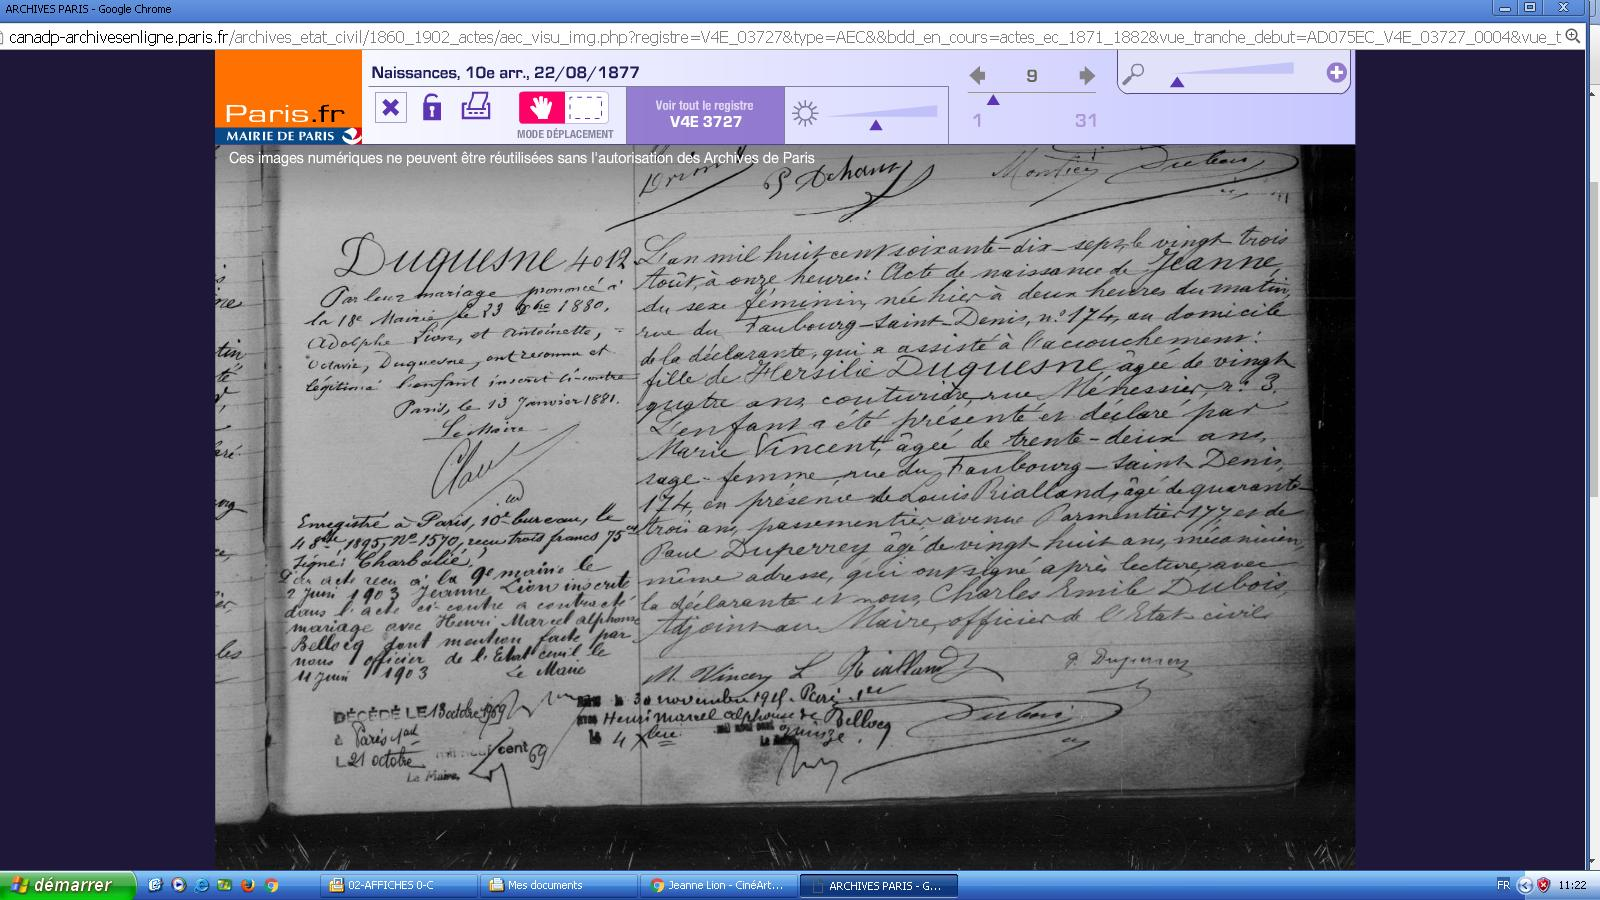 ARCHIVES PARIS - Google Chrome
canadp-archivesenligne.paris.fr/archives_etat_civil/1860_1902_actes/aec_visu_img.php?registre=V4E_03727&type=AEC&&bdd_en_cours=actes_ec_1871_1882&vue_tranche_debut=AD075EC_V4E_03727_0004&vue_t
Paris.fr
MAIRIE DE PARIS
Naissances, 10e arr., 22/08/1877
MODE DÉPLACEMENT
Voir tout le registre
V4E 3727
9
1 31
Ces images numériques ne peuvent être réutilisées sans l'autorisation des Archives de Paris
Duquesne 4012
Par leur mariage prononcé à
la 18e Mairie le 23 Xbre 1880,
Adolphe Lion, et Antoinette,
Octavie, Duquesne, ont reconnu et
légitimé l'enfant inscrit ci-contre
Paris, le 13 Janvier 1881.
Le Maire
Enregistré à Paris, 10e bureau, le
4 8bre 1895, No 1570, reçu trois francs 75
signé: Charbalié
Par acte reçu à la 9e mairie le
2 Juin 1903 Jeanne Lion inscrite
dans l'acte ci-contre a contracté
mariage avec Henri Marcel alphonse
Bellocq dont mention faite par
nous officier de l'Etat civil le
11 Juin 1903 Le Maire
DÉCÉDÉ LE 13 octobre 1969
à Paris
L 21 octobre cent 69
Le Maire,
L'an mil huit cent soixante-dix-sept, le vingt trois
Août, à onze heures: Acte de naissance de Jeanne,
du sexe féminin, née hier à deux heures du matin,
rue du Faubourg-Saint-Denis, no 174, au domicile
de la déclarante, qui a assisté à l'accouchement:
fille de Hersilie Duquesne, âgée de vingt
quatre ans, couturière, rue Ménessier, no 3.
L'enfant a été présenté et déclaré par
Marie Vincent, âgée de trente-deux ans,
sage-femme, rue du Faubourg-Saint Denis,
174, en présence de Louis Rialland, âgé de quarante-
trois ans, passementier, avenue Parmentier 177 et de
Paul Duperrey âgé de vingt huit ans, mécanicien,
même adresse, qui ont signé après lecture, avec
la déclarante et nous, Charles Emile Dubois,
Adjoint au Maire, officier de l'Etat civil
M. Vincent L Rialland P. Duperrey
30 novembre 1915 Paris
Henri marcel alphonse de Bellocq
le 4 Xbre quinze.
démarrer
02-AFFICHES 0-C
Mes documents
Jeanne Lion - CinéArt...
ARCHIVES PARIS - G...
FR
11:22